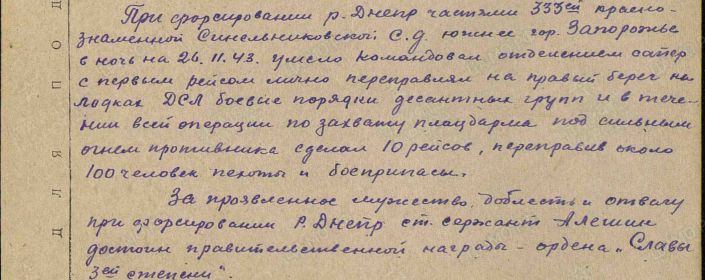 При форсировании р. Днепр частями 333ей красно-
знаменной Синельниковской С.д. южнее гор. Запорожье
в ночь на 26.11.43. умело командовал отделением сапер
с первым рейсом лично переправлял на правый берег на
лодках ДСЛ боевые порядки десантных групп и в тече-
нии всей операции по захвату плацдарма под сильным
огнем противника сделал 10 рейсов, переправив около
100 человек пехоты и боеприпасы.
За проявленное мужество, доблесть и отвагу
при форсировании р. Днепр ст. сержант Алешин
достоин правительственной награды - ордена „Славы
3ей степени".
Д Л Я П О Д